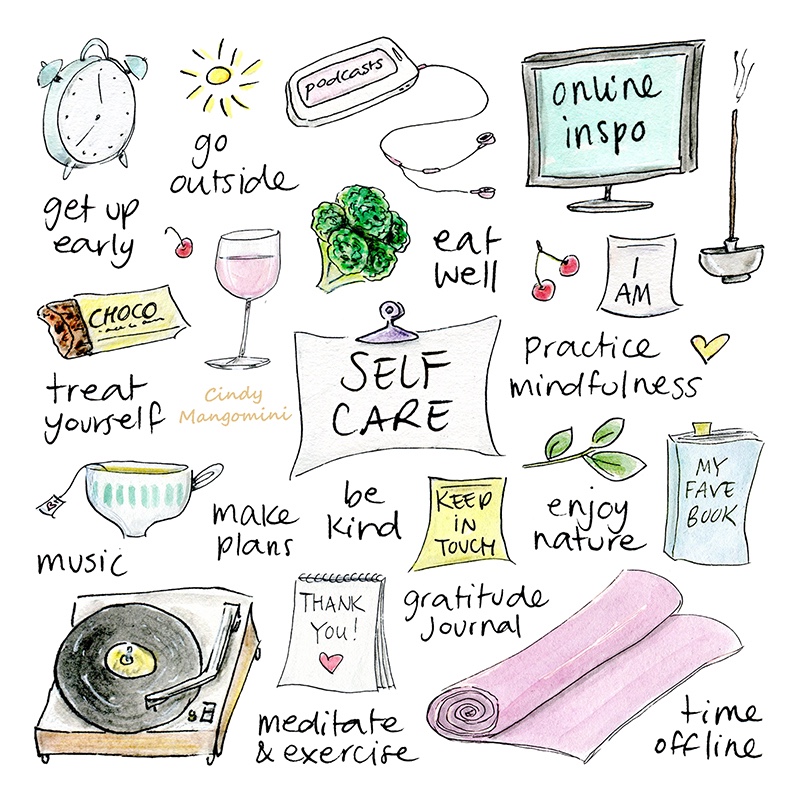 podcasts
online
inspo
go
outside
get up
early
eat
well
I
AM
CHOCO
SELF
CARE
practice
mindfulness
treat
yourself
Cindy
Mangomini
MY
FAVE
BOOK
be
kind
KEEP
IN
TOUCH
enjoy
nature
make
plans
music
THANK
YOU!
gratitude
journal
meditate
& exercise
time
offline